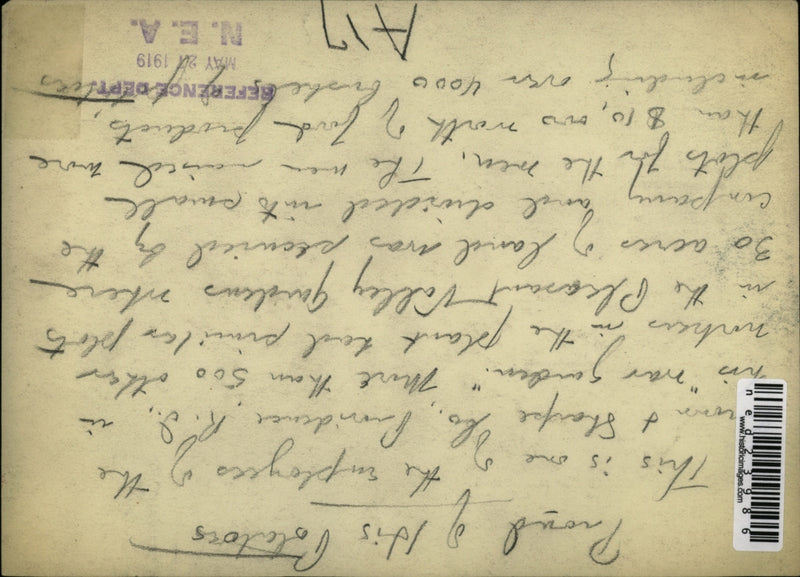 Proud of His Potatoes
This is one of the employees of the
Brown & Sharpe Co., Providence, R.I., in
his "war garden." More than 500 other
workers in the plant had similar plots
in the Pleasant Valley Gardens where
30 acres of land was secured by the
company and divided into small
plots for the men. The men raised more
than $10,000 worth of food products,
including over 4000 bushels of potatoes
REFERENCE DEPT.
MAY 21 1919
N. E. A.
A17
ned23986
www.historicimages.com